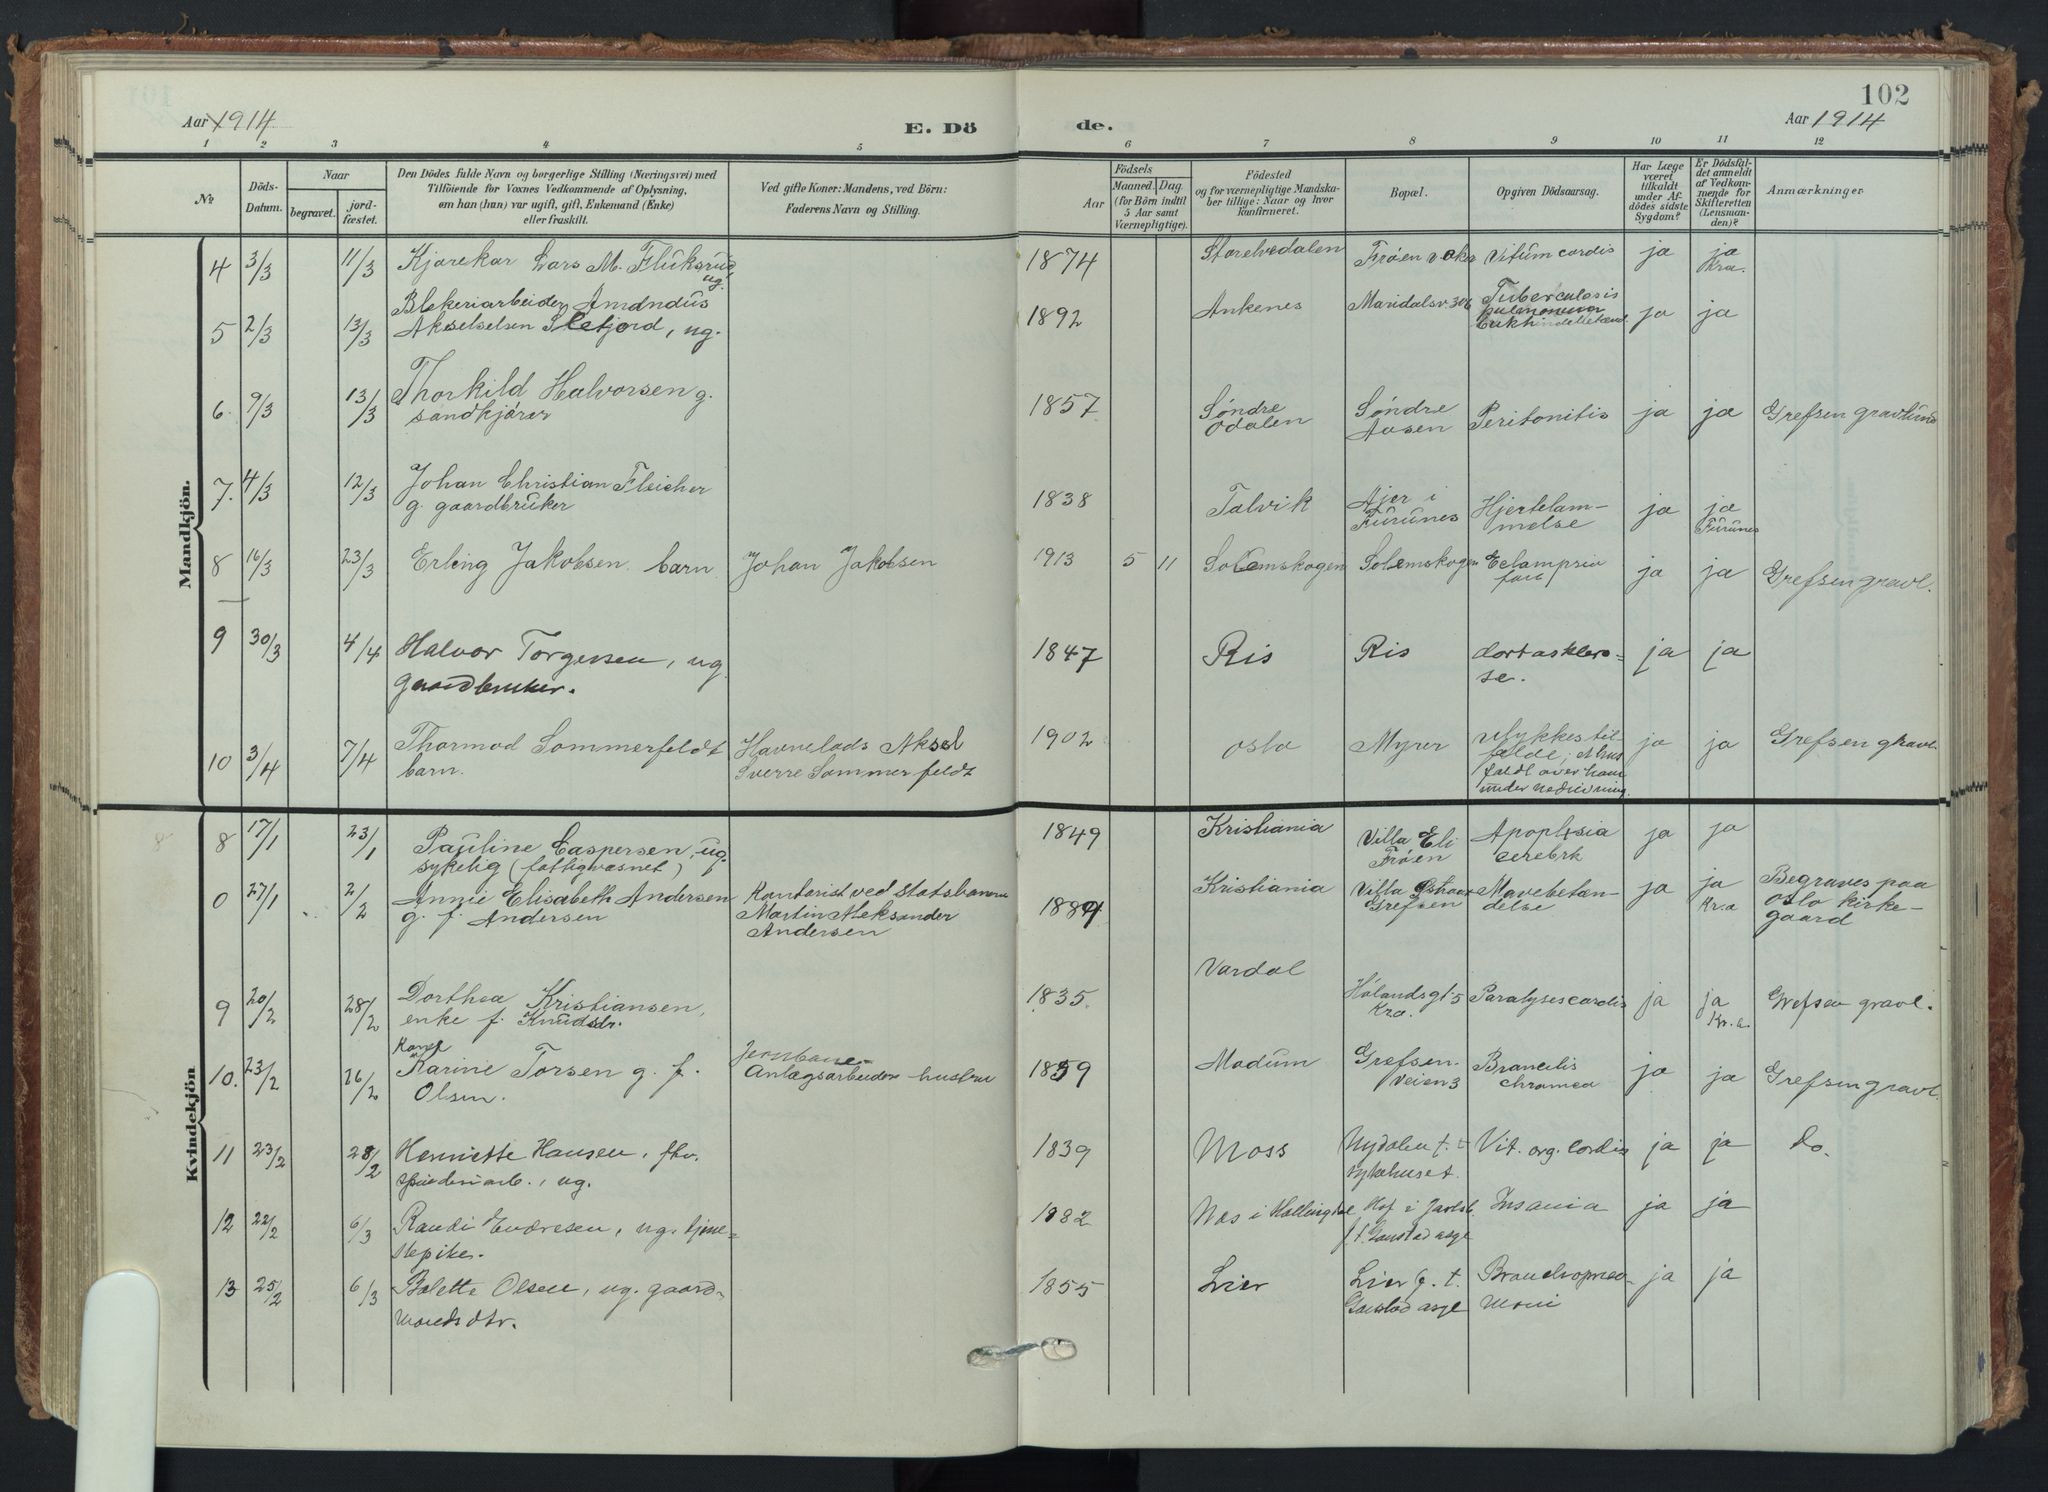 102
Aar 1914
E. Dö
de.
Aar 1914
1 2 3 4 5 6 7 8 9 10 11 12
№
Döds-
Datum.
Naar
begravet.
jord-
fæstet.
Den Dödes fulde Navn og borgerlige Stilling (Næringsvei) med
Tilföiende for Voxnes Vedkommende af Oplysning,
om han (hun) var ugift, gift, Enkemand (Enke)
eller fraskilt.
Ved gifte Koner: Mandens, ved Börn:
Faderens Navn og Stilling.
Födsels
Aar
Maaned. Dag
(for Börn indtil
5 Aar samt
Værnepligtige).
Födested
og for værnepligtige Mandska-
ber tillige: Naar og hvor
konfirmeret.
Bopæl.
Opgiven Dödsaarsag.
Har Læge
været
tilkaldt
under Af-
dödes sidste
Sygdom?
Er Dödsfal-
det anmeldt
af Vedkom-
mende for
Skifteretten
(Lensman-
den)?
Anmærkninger
Mandkjön.
4 3/3 11/3 Kjørekar Lars M. Fluksrud
ug.
1874 Storelvedalen Frøen Vitium cordis ja ja
Kra.
5 2/3 13/3 Blekeriarbeider
Akselselsen Sletjord, ug.
1892 Ankenes Maridalsv. 306 Tuberculosis
pulmonum
ja ja
6. 9/3 13/3 Thorkild Halvorsen g.
sandkjører
1857 Søndre
Odalen
Søndre
Aasen
Peritonitis ja ja Grefsen gravlund
7. 4/3 12/3 Johan Christian Fleicher
g. gaardbruker
1838 Talvik Ajer i
Furunes
Hjertelam-
melse
ja ja
Furunes
8 16/3 23/3 Erling Jakobsen. barn Johan Jakobsen
1913 5 11 Solemskogen Solemskogen Eclampsia ja ja Grefsen gravl.
9 30/3 4/4 Halvor Torgersen, ug
gaardbruker.
1847 Ris Ris aortasklero=
se.
ja ja
10 3/4 7/4 Thormod Sommerfeldt
barn.
Havnelods Aksel
Sverre Sommerfeldt
1902 Oslo Myrer Ulykkestil
fælde; et hus
faldt over ham
under nedrivning.
ja ja Grefsen gravl.
Kvindekjön
8 8 17/1 23/1 Pauline Caspersen, ug.
sykelig (fattigvæsnet)
1849 Kristiania Villa Eli
Frøen
Apoplexia
cerebri
ja ja
0 27/1 2/2 Annie Elisabeth Andersen
g. f. Andersen
Kontorist ved Statsbanerne
Martin Aleksander
Andersen
Kristiania Villa
Grefsen
Mavebetæn-
delse
ja ja
Kr.a
Begraves paa
Oslo kirke-
gaard
9 20/2 28/2 Dorthea Kristiansen,
enke f. Knudsdr.
1835. Vardal Hølandsgt 5
Kra.
Paralyses cordis ja ja
Kr.a.
Grefsen gravl.
10. 23/2 26/2 Karine Torsen g. f.
Olsen.
Jernbane-
Anlægsarbeider hustru
1859 Modum Grefsen-
veien 3
Bronchitis
chronica
ja ja Grefsen gravl.
11 23/2 28/2 Henriette Hansen, fhv.
spinderiarb., ug.
1839 Moss Nydalen f. t.
sykehuset.
Vit. org. cordis ja ja do.
12 22/2 6/3 Randi Endresen, ug. tjene=
stepike.
1882 Næs i Hallingdal Hof i Jarlsb.
f. t. Gaustad asyl
Insania ja ja
13 25/2 6/3 Bolette Olsen, ug. gaard-
mandsdtr.
1855 Lier Lier f. t.
Gaustad asyl
Bronchopneu-
moni
ja ja